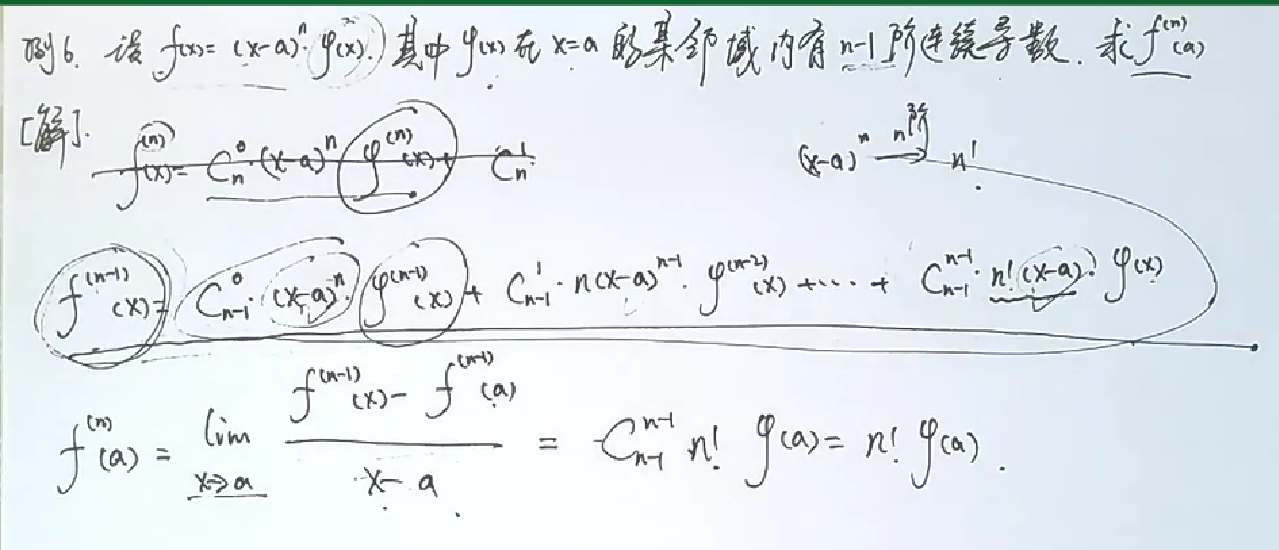 例6. 设 f(x)= (x-a)^n · φ(x). 其中 φ(x) 在 x=a 的某邻域内有 n-1 阶连续导数. 求 f^(n)(a)
[解]. f^(n)(x)= C_n^0 · (x-a)^n φ^(n)(x)+ C_n^1 (x-a)^n —n阶→ n!
f^(n-1)(x)= C_{n-1}^0 · (x-a)^n · φ^(n-1)(x) + C_{n-1}^1 · n(x-a)^{n-1} · φ^(n-2)(x) + ··· + C_{n-1}^{n-1} · n!(x-a) · φ(x)
f^(n)(a) = lim_{x→a} (f^(n-1)(x) - f^(n-1)(a)) / (x - a) = C_{n-1}^{n-1} n! φ(a) = n! φ(a).